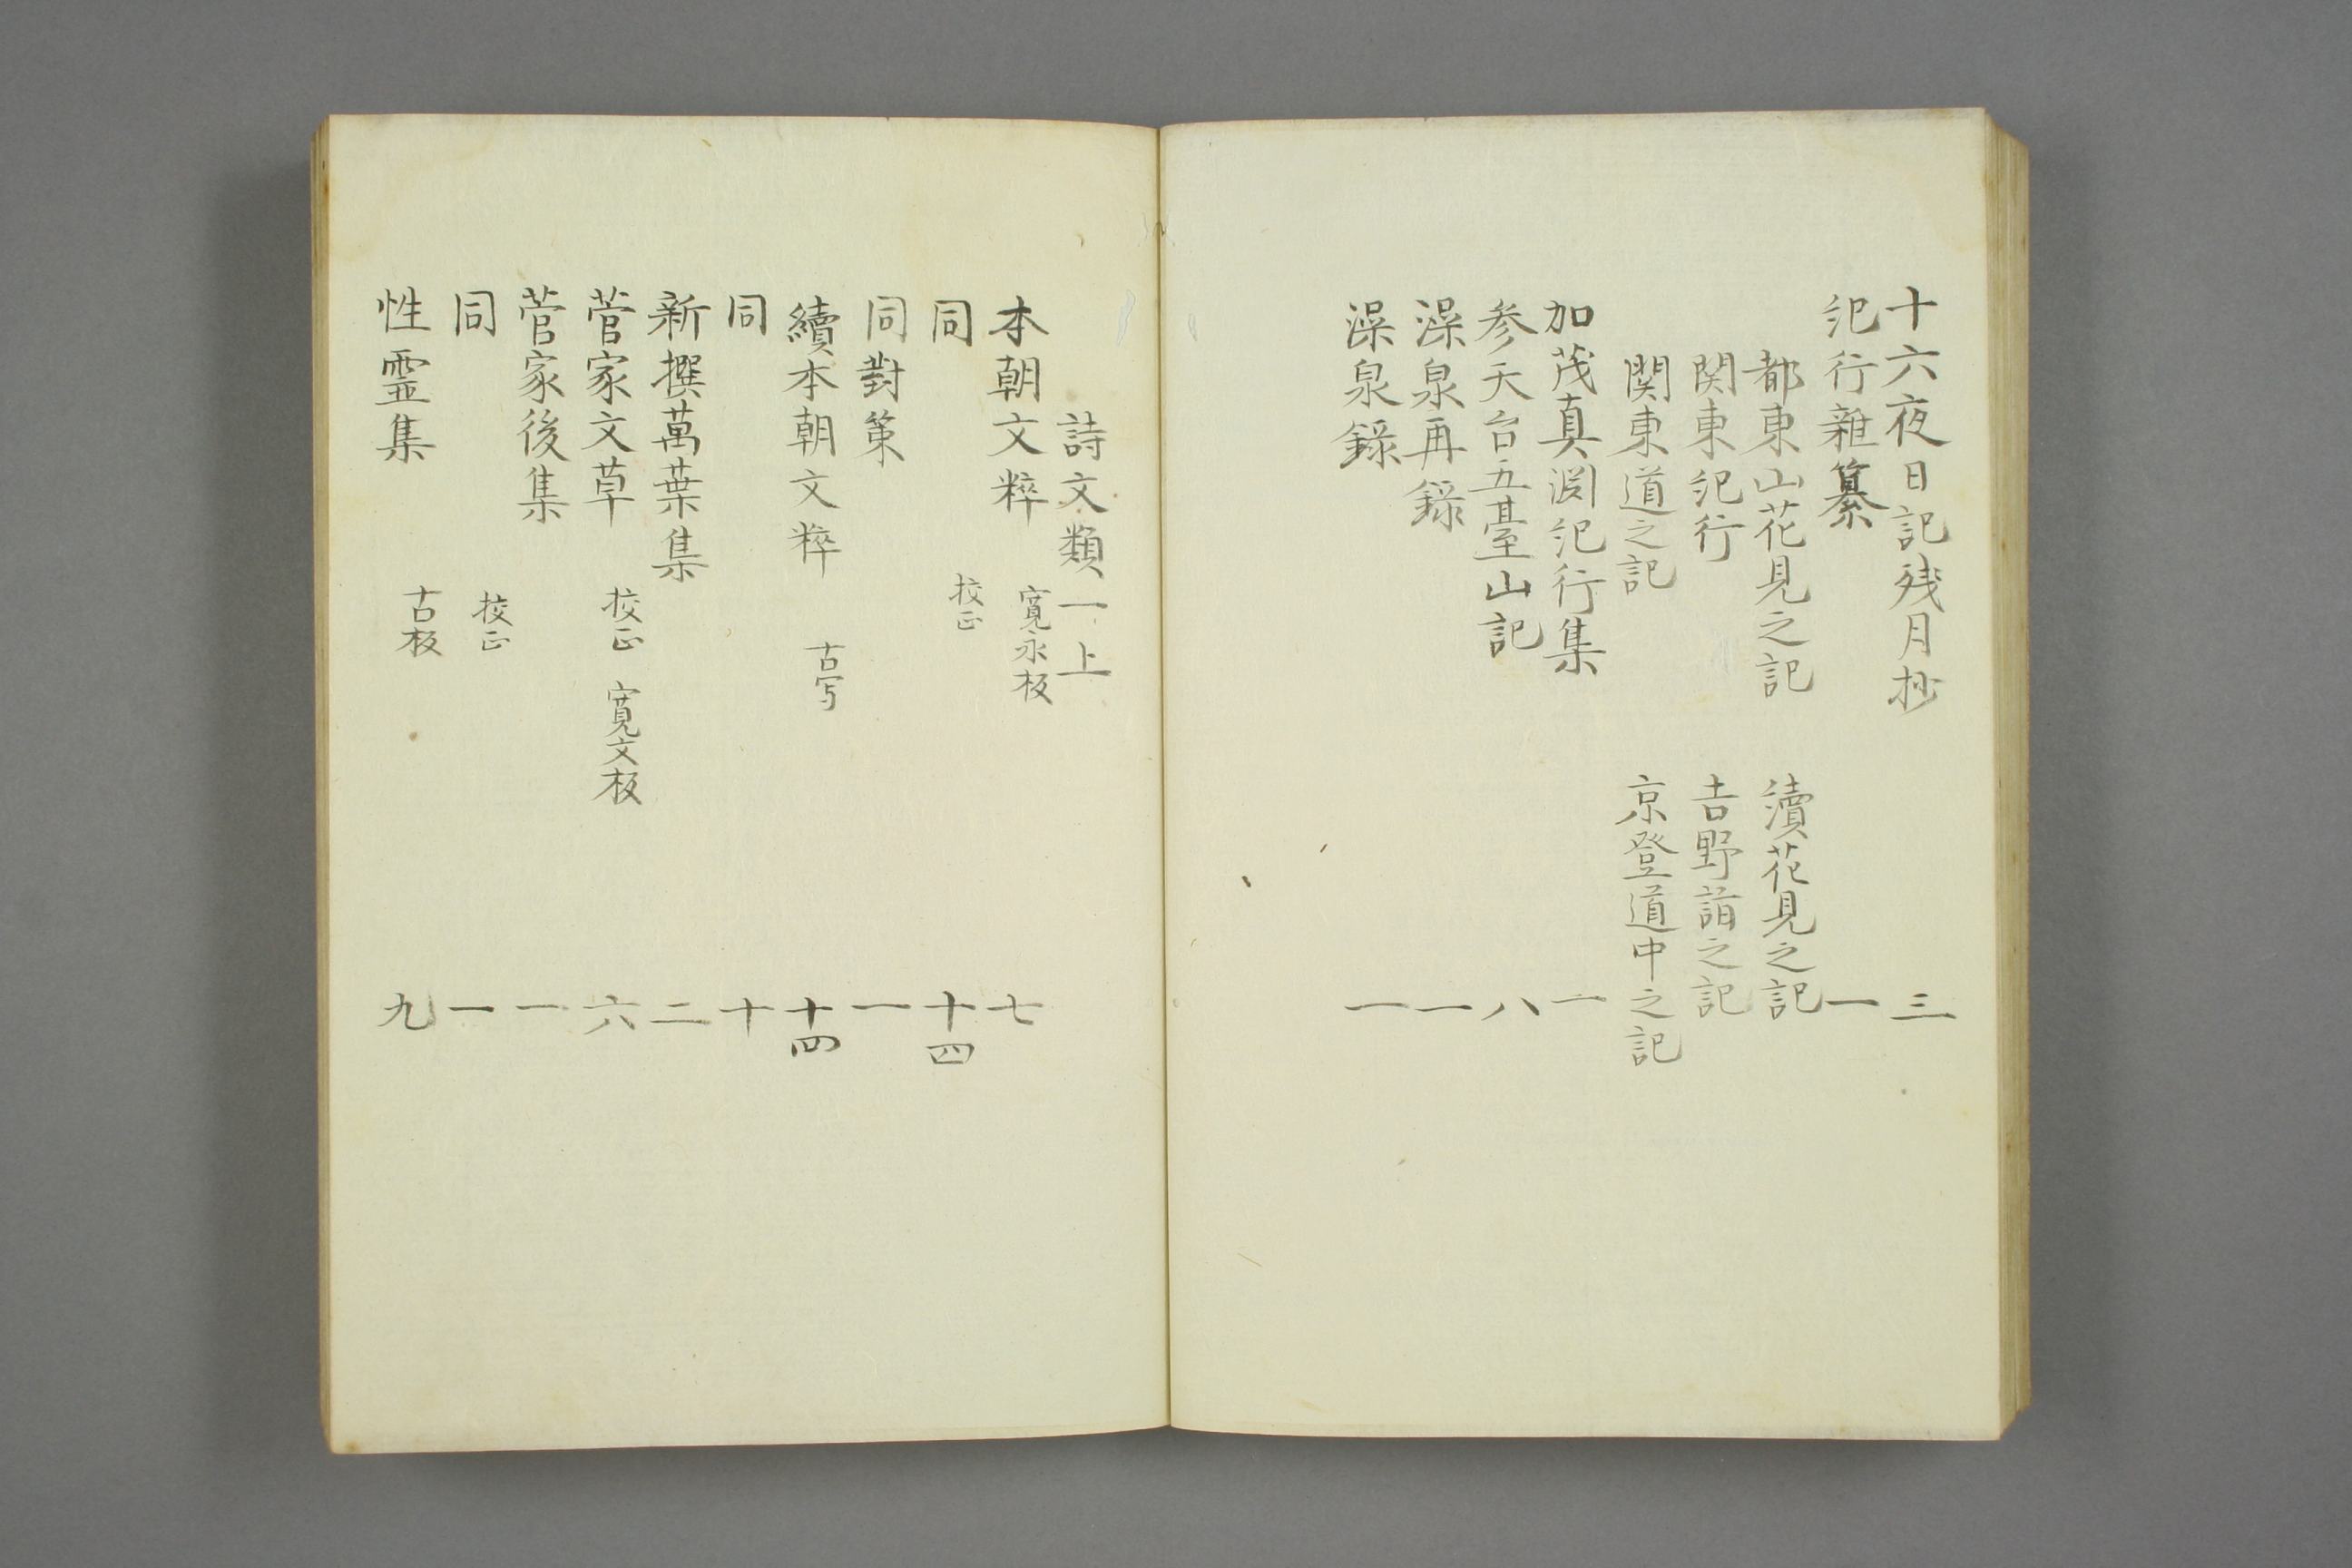 十六夜日記残月抄 三
紀行雜纂 一
都東山花見之記 續花見之記
関東紀行 吉野詣之記
関東道之記 京登道中之記
加茂真淵紀行集 一
参天台五臺山記 八
澡泉再錄 一
澡泉錄 一
詩文類一上
本朝文粹 寛永板 七
同 挍正 十四
同對策 一
續本朝文粹 古写 十四
同 十
新撰萬葉集 二
菅家文草 挍正 寛文板 六
菅家後集 一
同 挍正 一
性霊集 古板 九